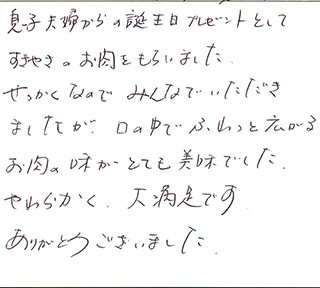 息子夫婦からの誕生日プレゼントとして
すきやきのお肉をもらいました.
せっかくなので みんなでいただき
ましたが. 口の中で ふわっと広がる
お肉の味がとても美味でした.
やわらかく. 大満足です
ありがとうございました.